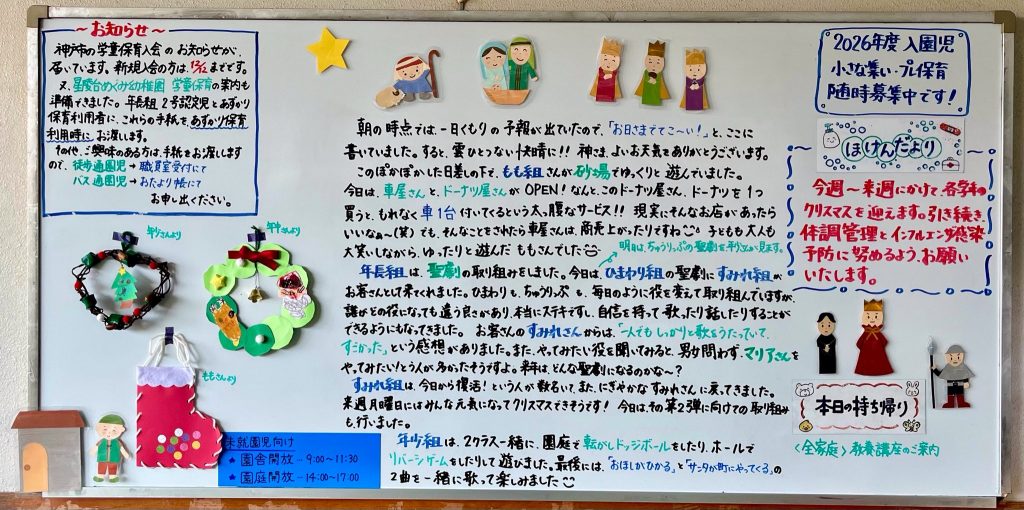 ～お知らせ～
神戸市の学童保育入会のお知らせが、
届いています。新規入会の方は、12/12までです。
又、星陵台めぐみ幼稚園 学童保育の案内も
準備できました。年長組、2号認定児とあずかり
保育利用者に、これらの手紙をあずかり保育
利用時に、お渡します。
その他、ご興味のある方は、手紙をお渡しします
ので、徒歩通園児→職員室受付にて
バス通園児→おたより帳にて
お申し出ください。
年少さんより
年中さんより
ももさんより
未就園児向け
★ 園舎開放…9:00～11:30
★ 園庭開放…14:00～17:00
朝の時点では、一日くもりの予報が出ていたので、「お日さまでてこ～い！」と、ここに
書いていました。すると、雲ひとつない快晴に!! 神さま、よいお天気をありがとうございます。
このぽかぽかした日差しの下で、もも組さんが砂場でゆっくりと遊んでいました。
今日は、車屋さんと、ドーナツ屋さんがOPEN！なんと、このドーナツ屋さん、ドーナツを1つ
買うと、もれなく車1台付いてくるという太っ腹なサービス!! 現実にそんなお店があったら
いいなぁ～(笑)でも、そんなことをされたら車屋さんは、商売上がったりですね 子どもも大人も
大笑いしながら、ゆったりと遊んだももさんでした
明日は、ちゅうりっぷの聖劇を年少さんが見ます。
年長組は、聖劇の取り組みをしました。今日は、ひまわり組の聖劇にすみれ組が
お客さんとして来てくれました。ひまわりも、ちゅうりっぷも、毎日のように役を変えて取り組んでいますが、
誰がどの役になっても違う良さがあり、本当にステキですし、自信を持って歌ったり話したりすることが
できるようにもなってきました。 お客さんのすみれさんからは、「一人でもしっかりと歌をうたっていて、
すごかった」という感想がありました。また、やってみたい役を聞いてみると、男女問わず、マリアさんを
やってみたい！という人が多かったそうですよ。来年は、どんな聖劇になるのかな～？
すみれ組は、今日から復活！という人が数名いて、また、にぎやかなすみれさんに戻ってきました。
来週月曜日にはみんな元気になってクリスマスできそうです！ 今日は、その第2弾に向けての取り組み
も行いました。
年少組は、2クラス一緒に、園庭で転がしドッジボールをしたり、ホールで
リバーシゲームをしたりして遊びました。最後には、「おほしがひかる」と「サンタが町にやってくる」の
2曲を一緒に歌って楽しみました
2026年度 入園児
小さな集い・プレ保育
随時募集中です！
ほけんだより
今週～来週にかけて、各学年の
クリスマスを迎えます。引き続き、
体調管理とインフルエンザ感染
予防に努めるよう、お願い
いたします。
本日の持ち帰り
〈全家庭〉教養講座のご案内